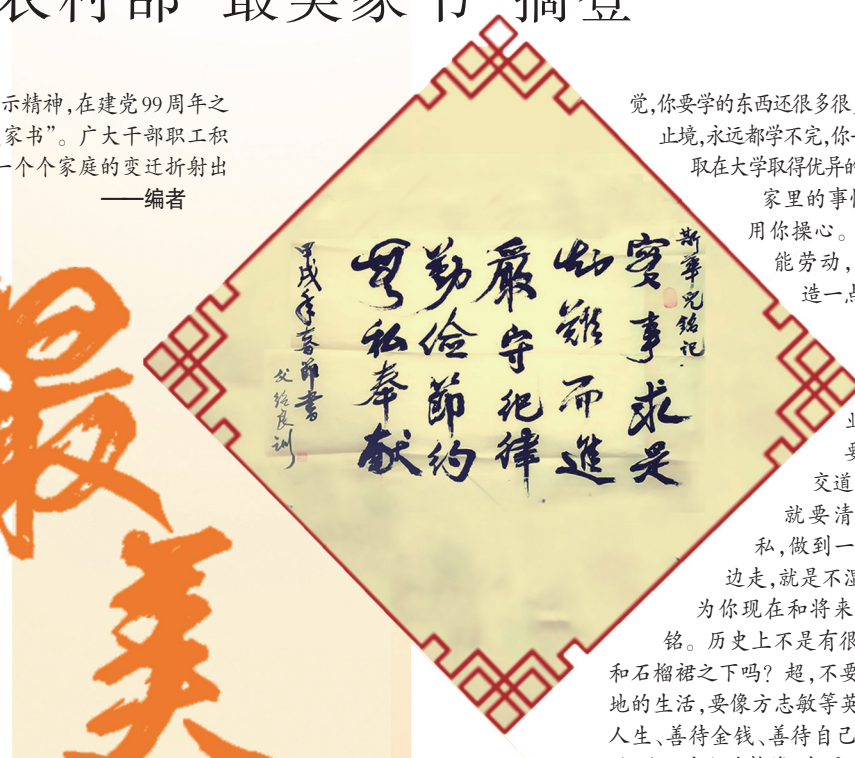 农村部“最美家书”摘登
示精神,在建党99周年之
家书”。广大干部职工积
一个个家庭的变迁折射出
——编者
最
美
斯華兒銘记
實事求是
劫難而進
嚴守纪律
勤俭節约
無私奉献
甲戌年春節書
父绍良训
觉,你要学的东西还很多很
止境,永远都学不完,你
取在大学取得优异的
家里的事
用你操心。
能劳动,
造一点
交道
就要清
私,做到一
边走,就是不湿
为你现在和将来
铭。历史上不是有很
和石榴裙之下吗?超,不要
地的生活,要像方志敏等英
人生、善待金钱、善待自己